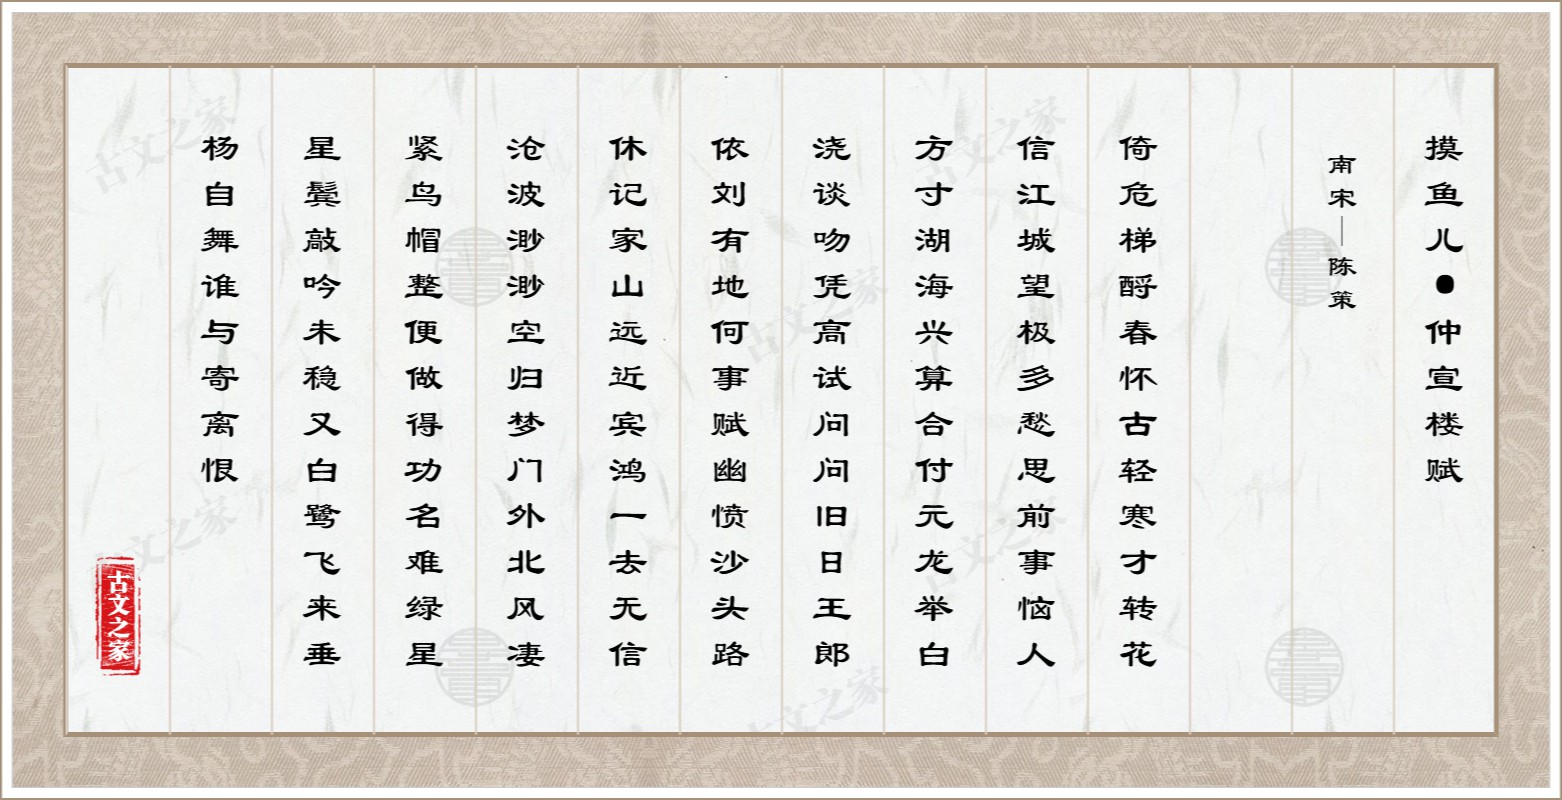 摸鱼儿●仲宣楼赋
南宋—陈策
倚危梯酹春怀古轻寒才转花
信江城望极多愁思前事恼人
方寸湖海兴算合付元龙举白
浇谈吻凭高试问问旧日王郎
依刘有地何事赋幽愤沙头路
休记家山远近宾鸿一去无信
沧波渺渺空归梦门外北风凄
紧鸟帽整便做得功名难绿星
星鬓敲吟未稳又白鹭飞来垂
杨自舞谁与寄离恨
古文之家